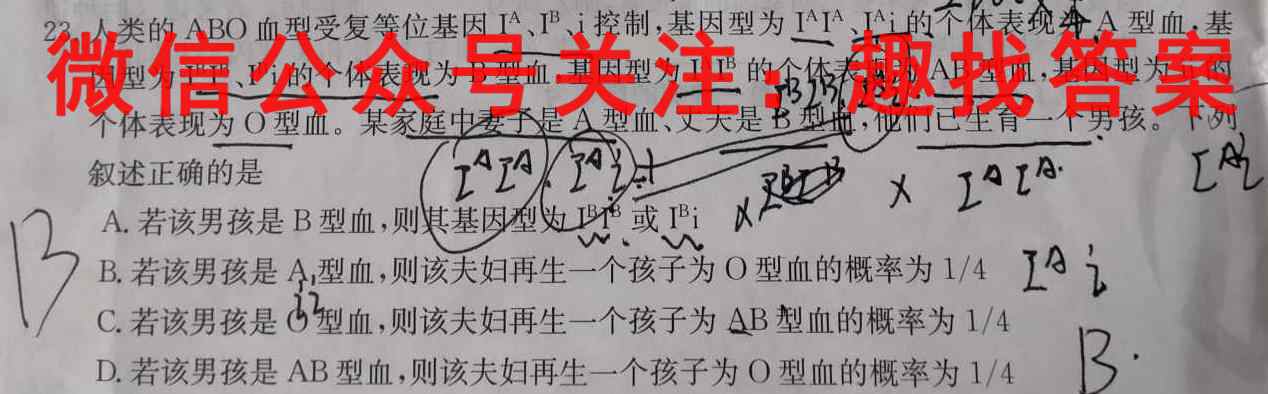 23. 人类的 ABO 血型受复等位基因 Iᴬ、Iᴮ、i 控制,基因型为 IᴬIᴬ、Iᴬi 的个体表现为 A 型血,基
因型为 的个体表现为 B 型血,基因型为 IᴬIᴮ 的个体表现为 AB 型血,基因型为 ii 的
微信公众号关注:趣找答案
个体表现为 O 型血。某家庭中妻子是 A 型血、丈夫是 B 型血,他们已生育一个男孩。下列
叙述正确的是
IᴬIᴬ . Iᴬi
× IᴬIᴬ
Iᴬi
A. 若该男孩是 B 型血,则其基因型为 IᴮIᴮ 或 Iᴮi
B. 若该男孩是 A 型血,则该夫妇再生一个孩子为 O 型血的概率为 1/4
Iᴬi
ii
C. 若该男孩是 O 型血,则该夫妇再生一个孩子为 AB 型血的概率为 1/4
D. 若该男孩是 AB 型血,则该夫妇再生一个孩子为 O 型血的概率为 1/4
B
B.